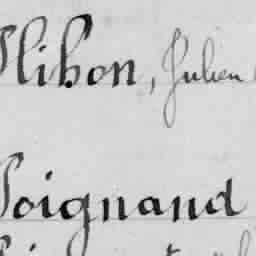 Plihon, Julien
Poignand